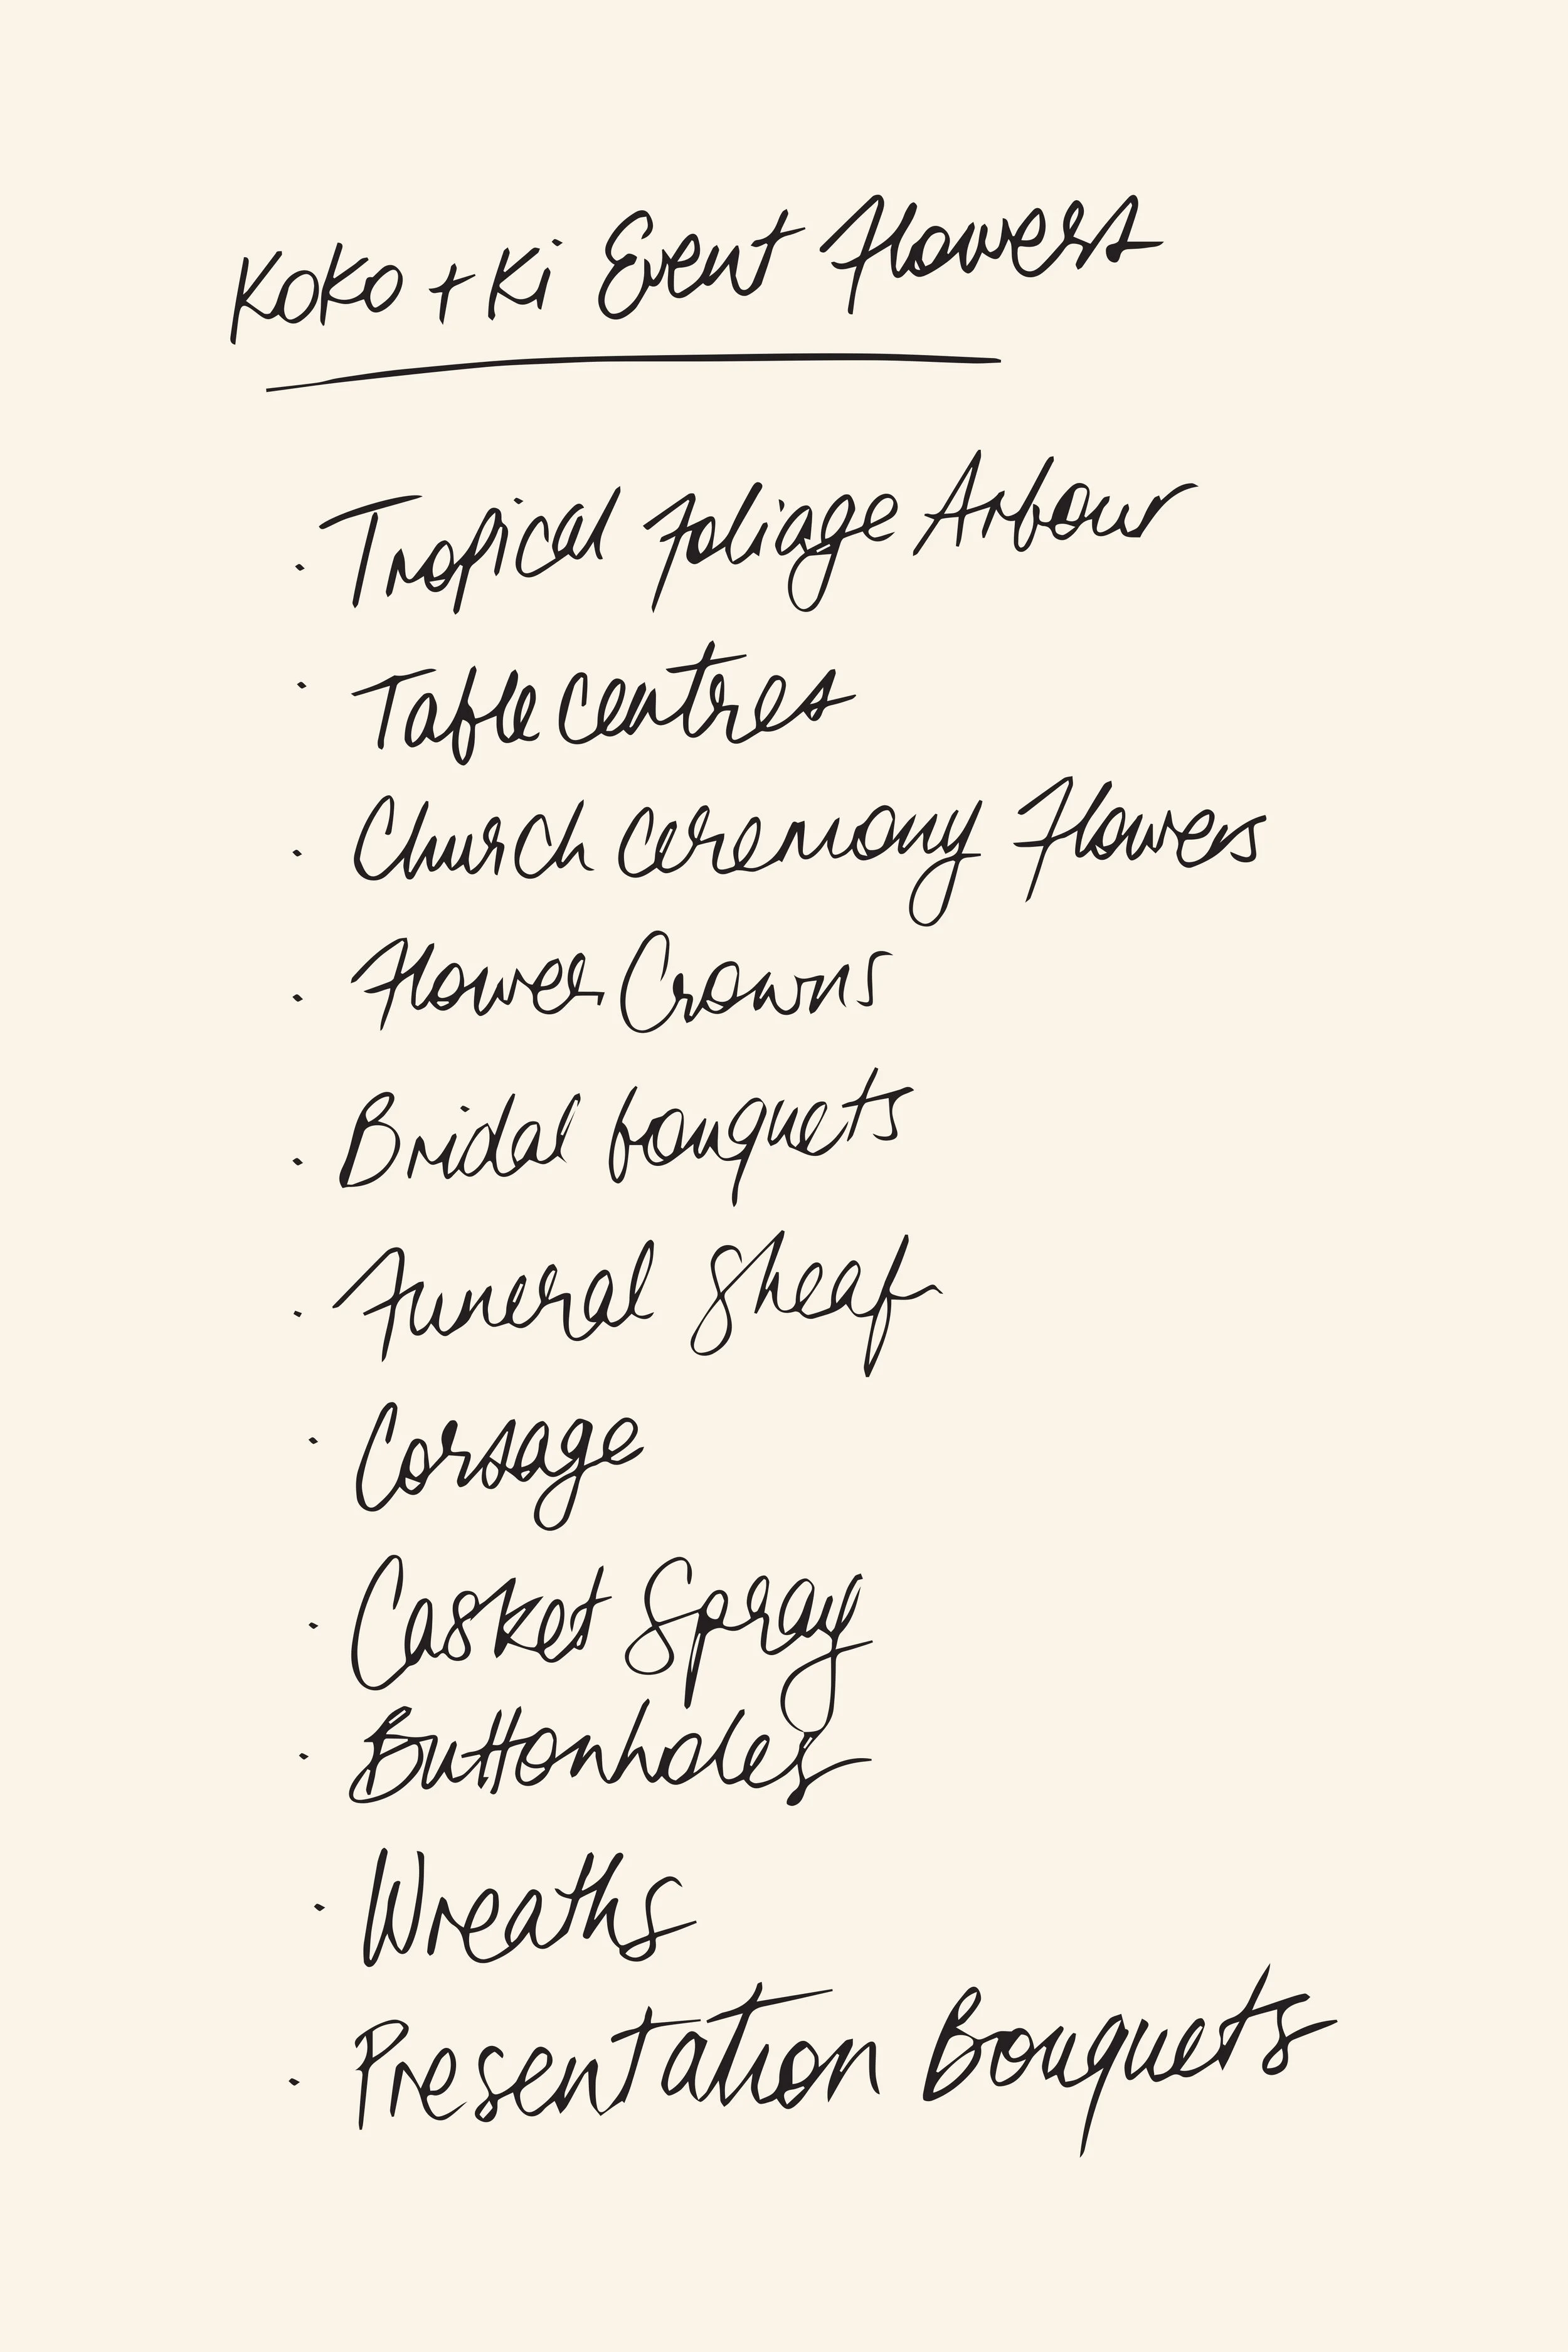 Koko + Ki Event Flowers
Tropical foliage Arbour
Table centres
Church ceremony Flowers
Flower Crowns
Bridal bouquets
Funeral Sheaf
Corsage
Casket Spray
Buttonholes
Wreaths
Presentation Bouquets